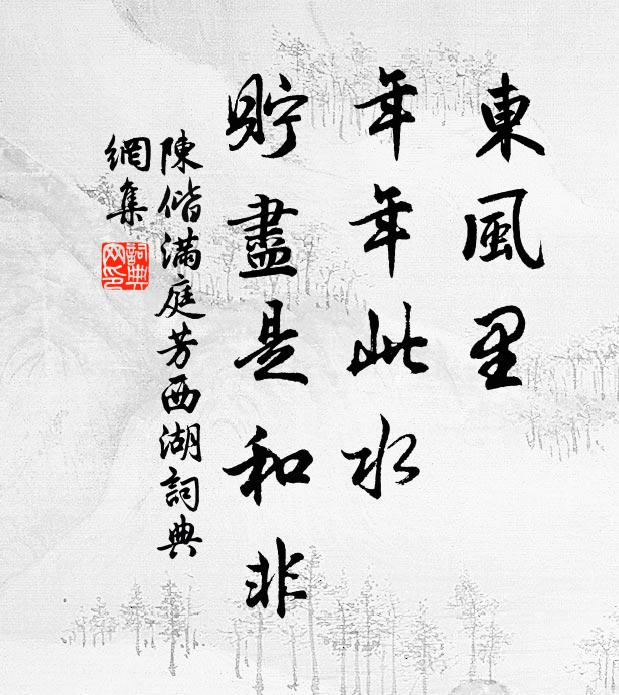 東風里
年年此水
貯盡是和非
陳偕滿庭芳西湖詞典
網集
詞典
网印